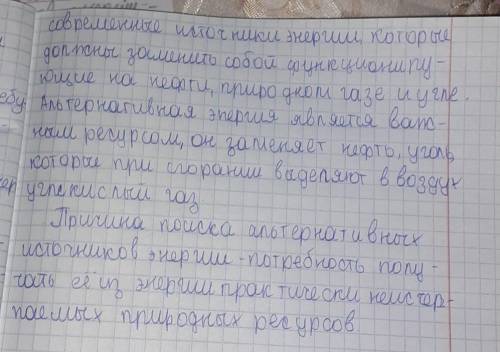 современные источники энергии, которые
должны заменить собой функциониру-
ющие на нефти, природном газе и угле.
Альтернативная энергия является важ-
ным ресурсом, он заменяет нефть, уголь
которые при сгорании выделяют в воздух
углекислый газ
Причина поиска альтернативных
источников энергии - потребность полу-
чать её из энергии практически неистер-
паемых природных ресурсов